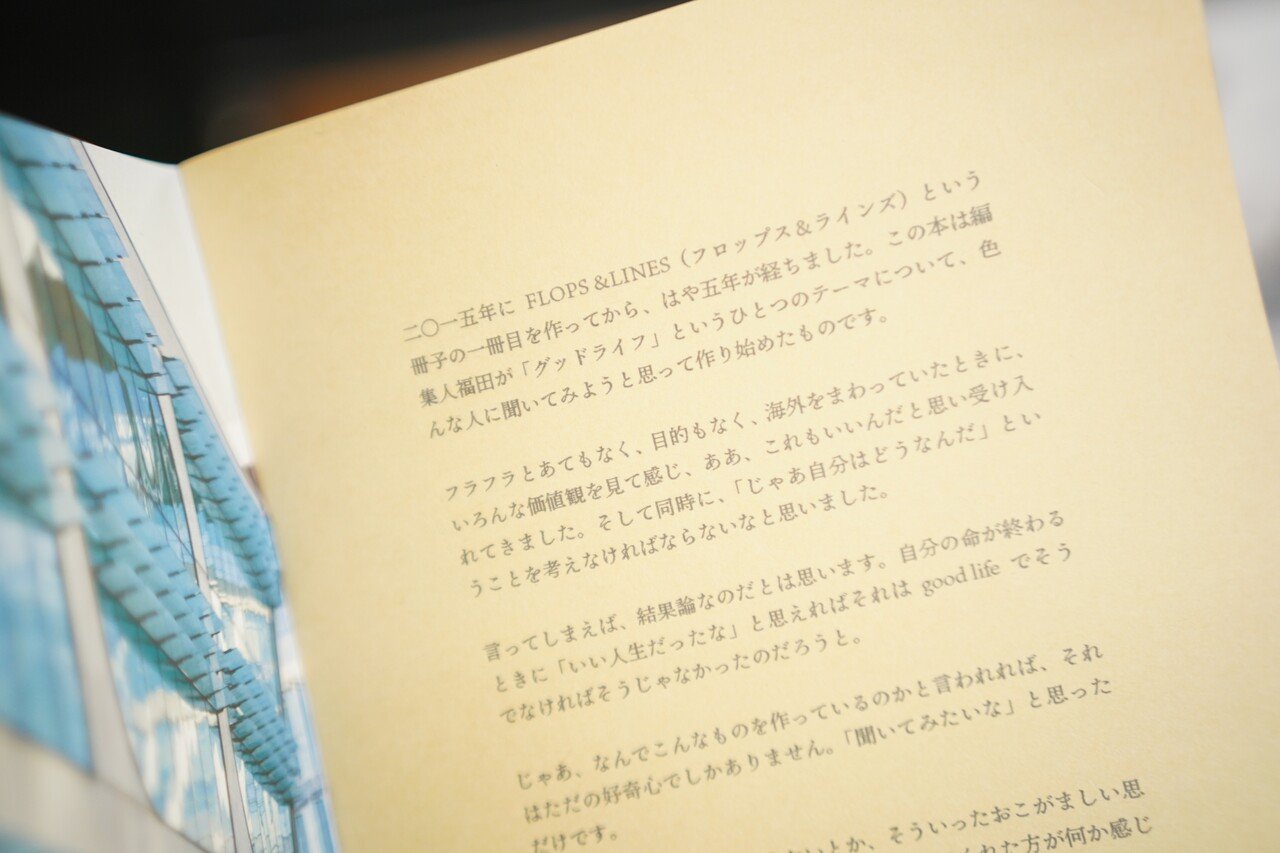 二〇一五年に FLOPS &LINES（フロップス＆ラインズ）という
冊子の一冊目を作ってから、はや五年が経ちました。この本は編
集人福田が「グッドライフ」というひとつのテーマについて、色
んな人に聞いてみようと思って作り始めたものです。
フラフラとあてもなく、目的もなく、海外をまわっていたときに、
いろんな価値観を見て感じ、ああ、これもいいんだと思い受け入
れてきました。そして同時に、「じゃあ自分はどうなんだ」とい
うことを考えなければならないなと思いました。
言ってしまえば、結果論なのだとは思います。自分の命が終わる
ときに「いい人生だったな」と思えればそれは good life でそう
でなければそうじゃなかったのだろうと。
じゃあ、なんでこんなものを作っているのかと言われれば、それ
はただの好奇心でしかありません。「聞いてみたいな」と思った
だけです。
とか、そういったおこがましい思
くれた方が何か感じ